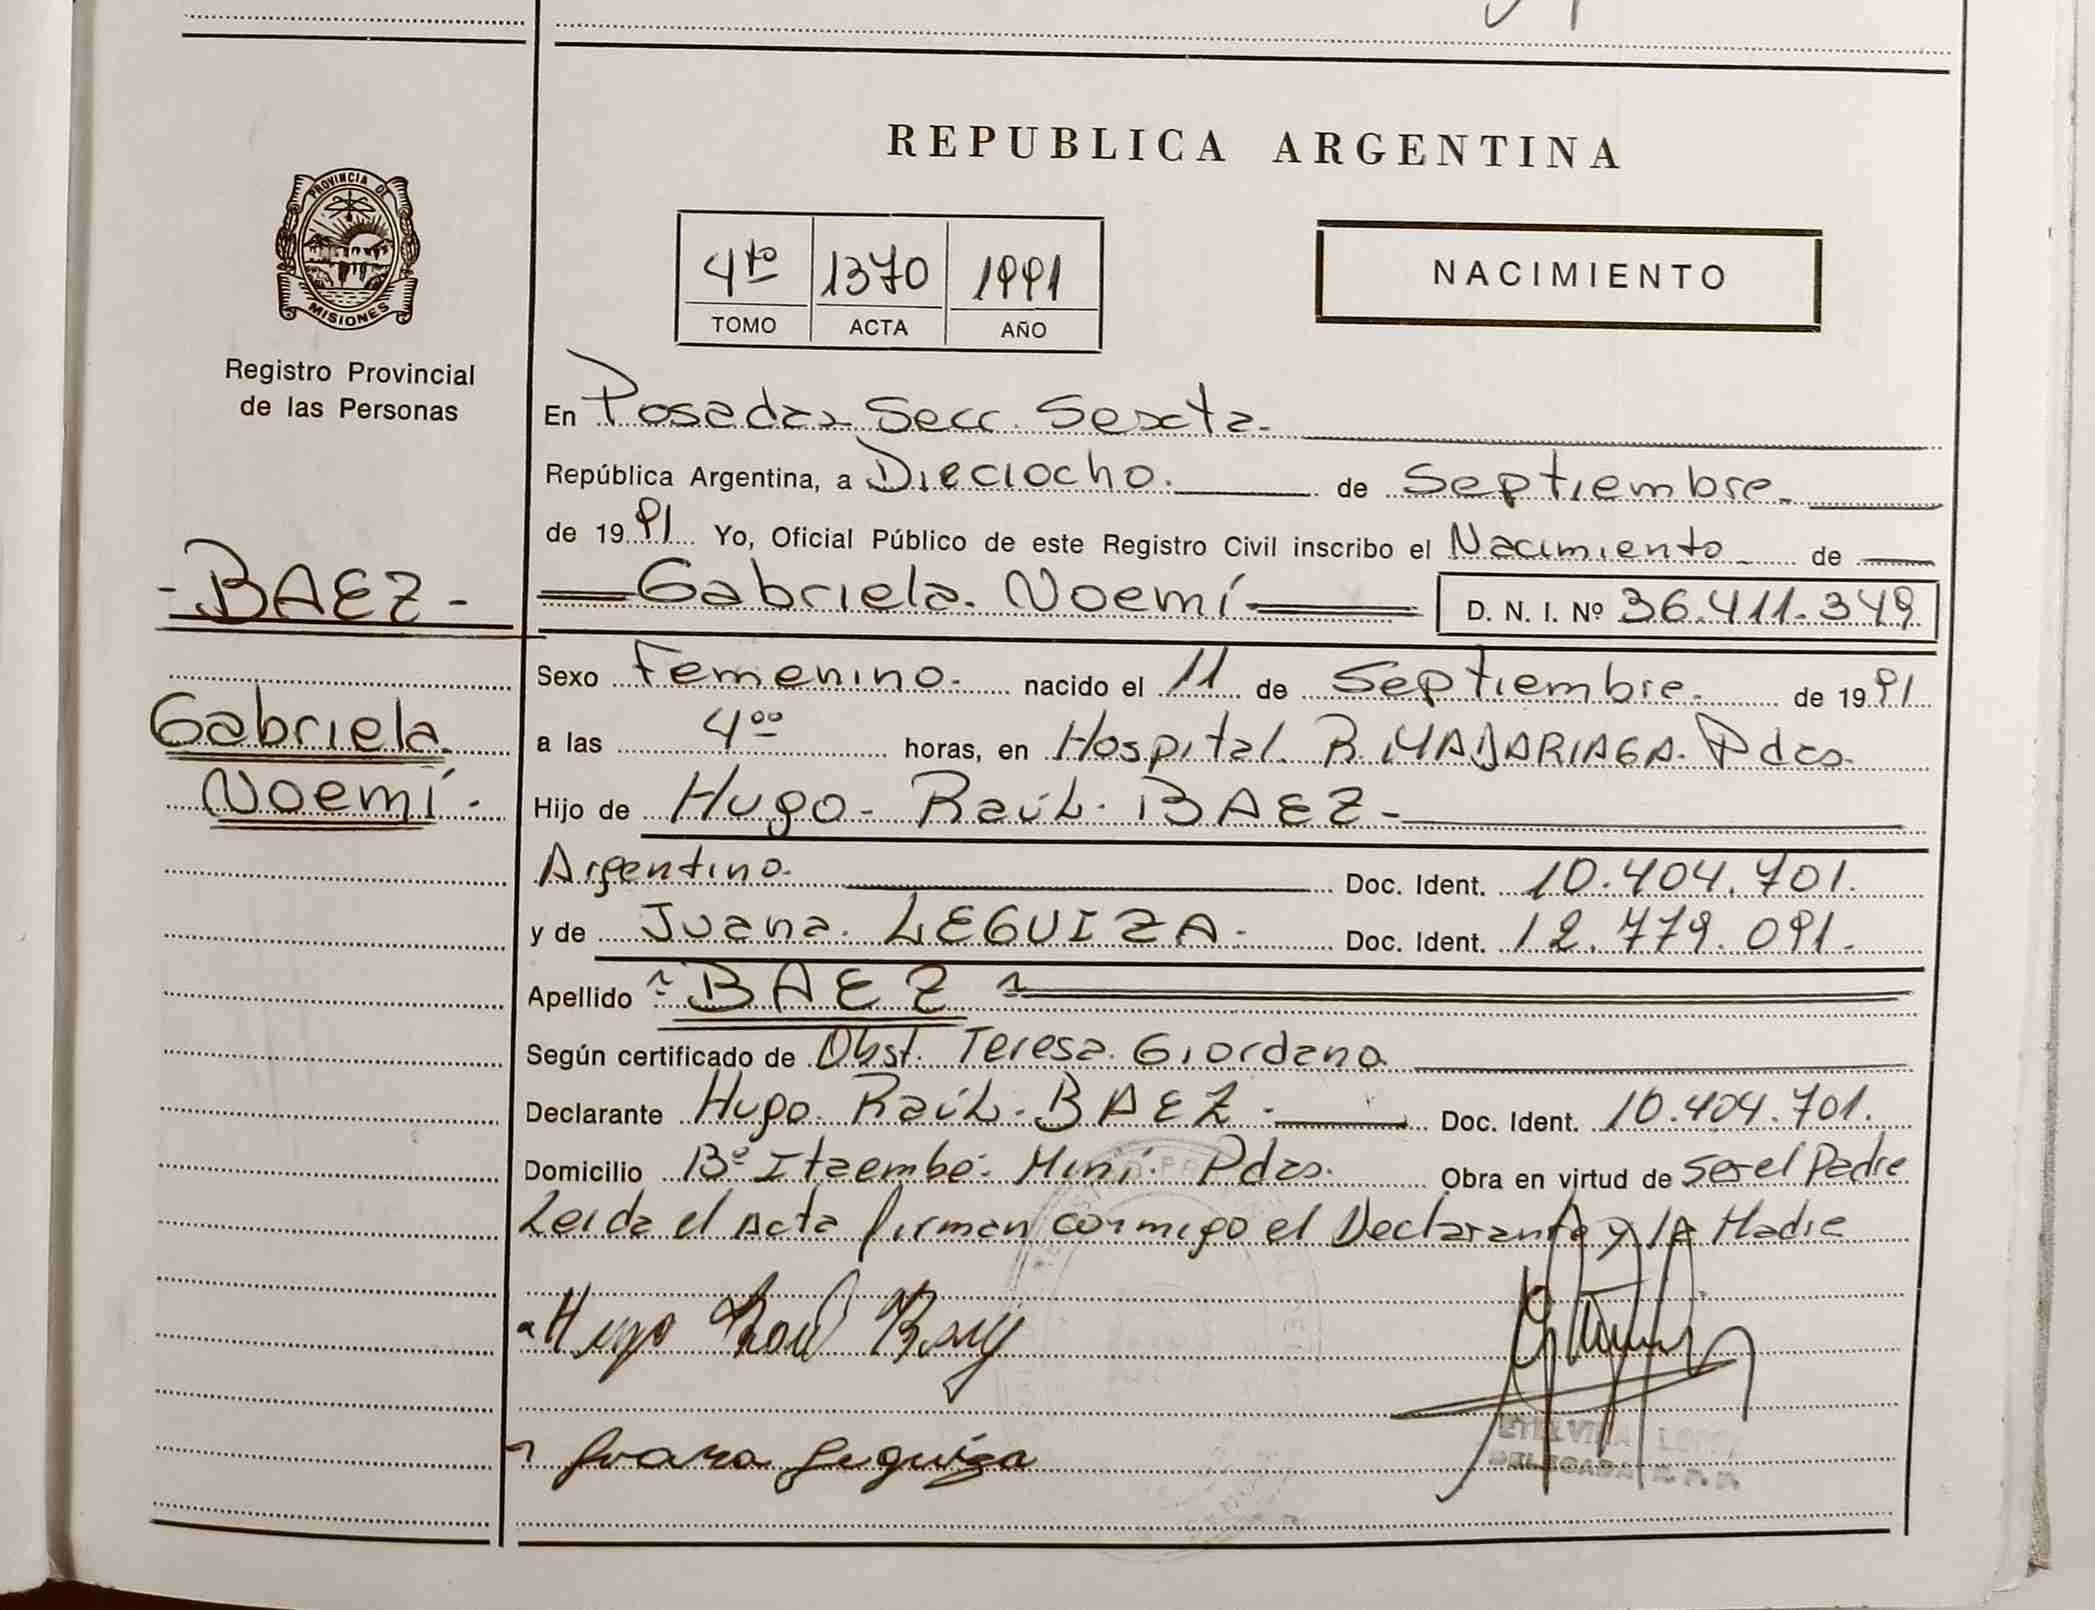 REPUBLICA ARGENTINA
PROVINCIA DE
MISIONES
Registro Provincial
de las Personas
4to 1370 1991
TOMO ACTA AÑO
NACIMIENTO
En Posadas Secc. Sexta.
República Argentina, a Dieciocho. de Septiembre.
de 1991 Yo, Oficial Público de este Registro Civil inscribo el Nacimiento de
- BAEZ -
Gabriela Noemí
D. N. I. Nº 36.411.349
Sexo Femenino. nacido el 11 de Septiembre. de 1991
Gabriela
Noemí.
a las 4oo horas, en Hospital R. MADARIAGA. Pdas.
Hijo de Hugo Raúl BAEZ -
Argentino. Doc. Ident. 10.404.701.
y de Juana LEGUIZA. Doc. Ident. 12.779.091.
Apellido BAEZ
Según certificado de Obst. Teresa Giordano
Declarante Hugo Raúl BAEZ. Doc. Ident. 10.404.701.
Domicilio Bº Itaembé Miní Pdas. Obra en virtud de ser el Padre
Leida el Acta firman conmigo el Declarante y la Madre
Hugo Raul Baez
Juana Leguiza